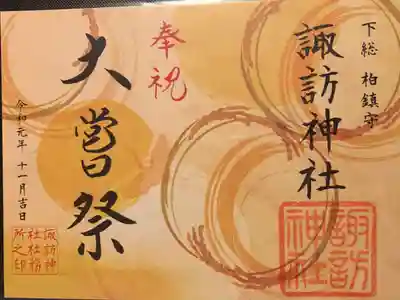 下総 柏鎮守
諏訪神社
諏訪神社
奉祝
大嘗祭
令和元年 十一月吉日
諏訪神
社社務
所之印